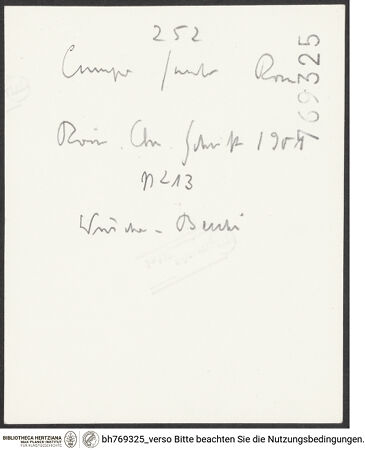 252
769325
Röm. Qu. Schrift 1904
N 213
Wüscher-Becchi
BIBLIOTHECA HERTZIANA
MAX-PLANCK-INSTITUT
FÜR KUNSTGESCHICHTE
bh769325_verso Bitte beachten Sie die Nutzungsbedingungen.